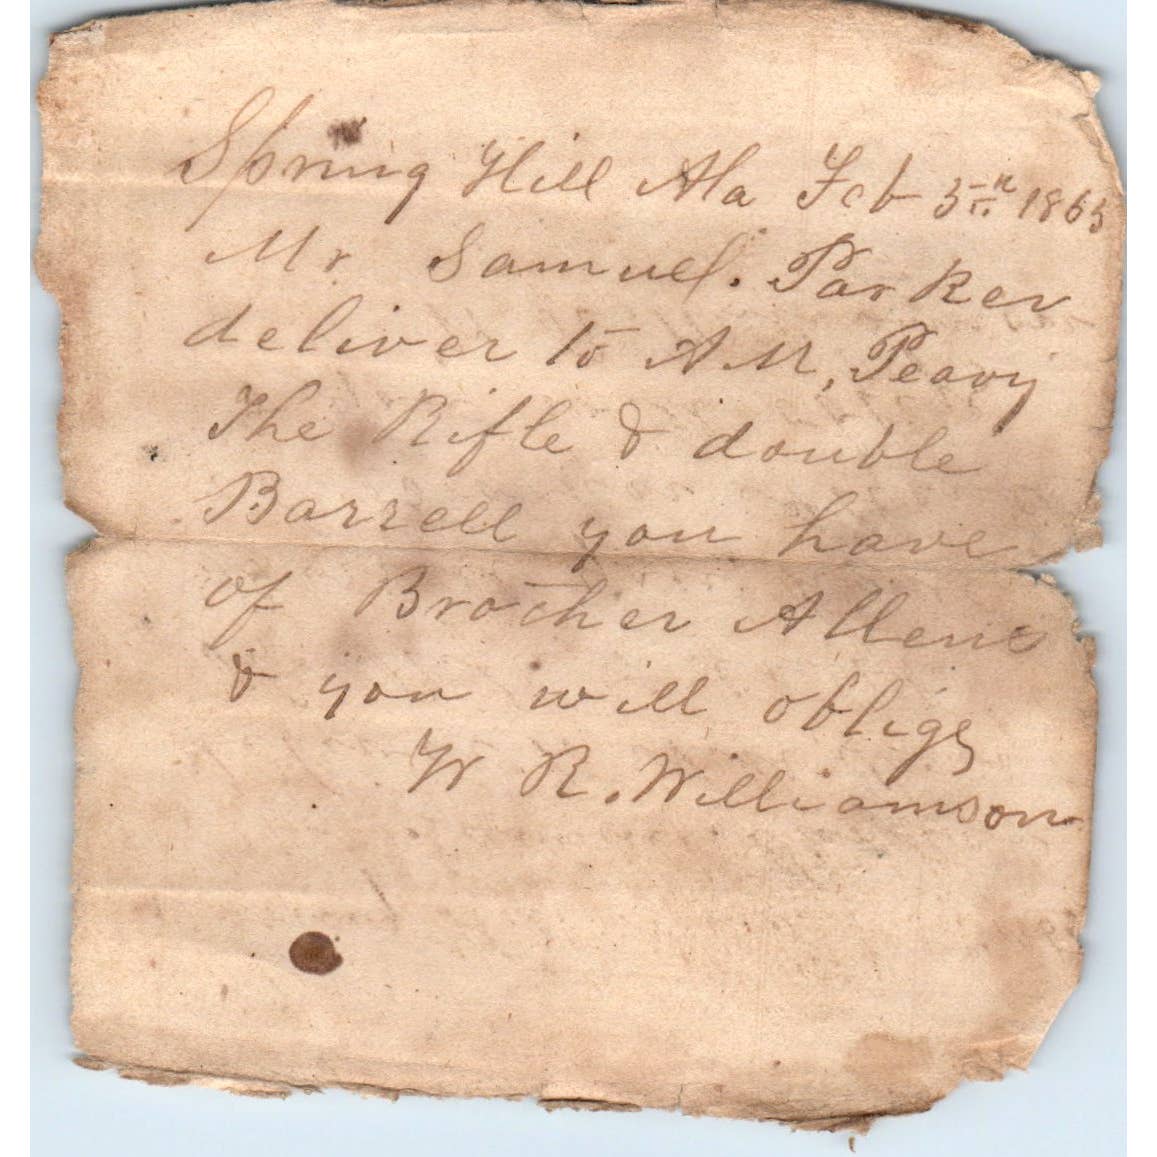 Spring Hill Ala Feb 5th 1865
Mr Samuel. Parker
deliver to A M, Peavy
The Rifle & double
Barrell you have
of Brother Allens
& you will oblige
W R. Williamson